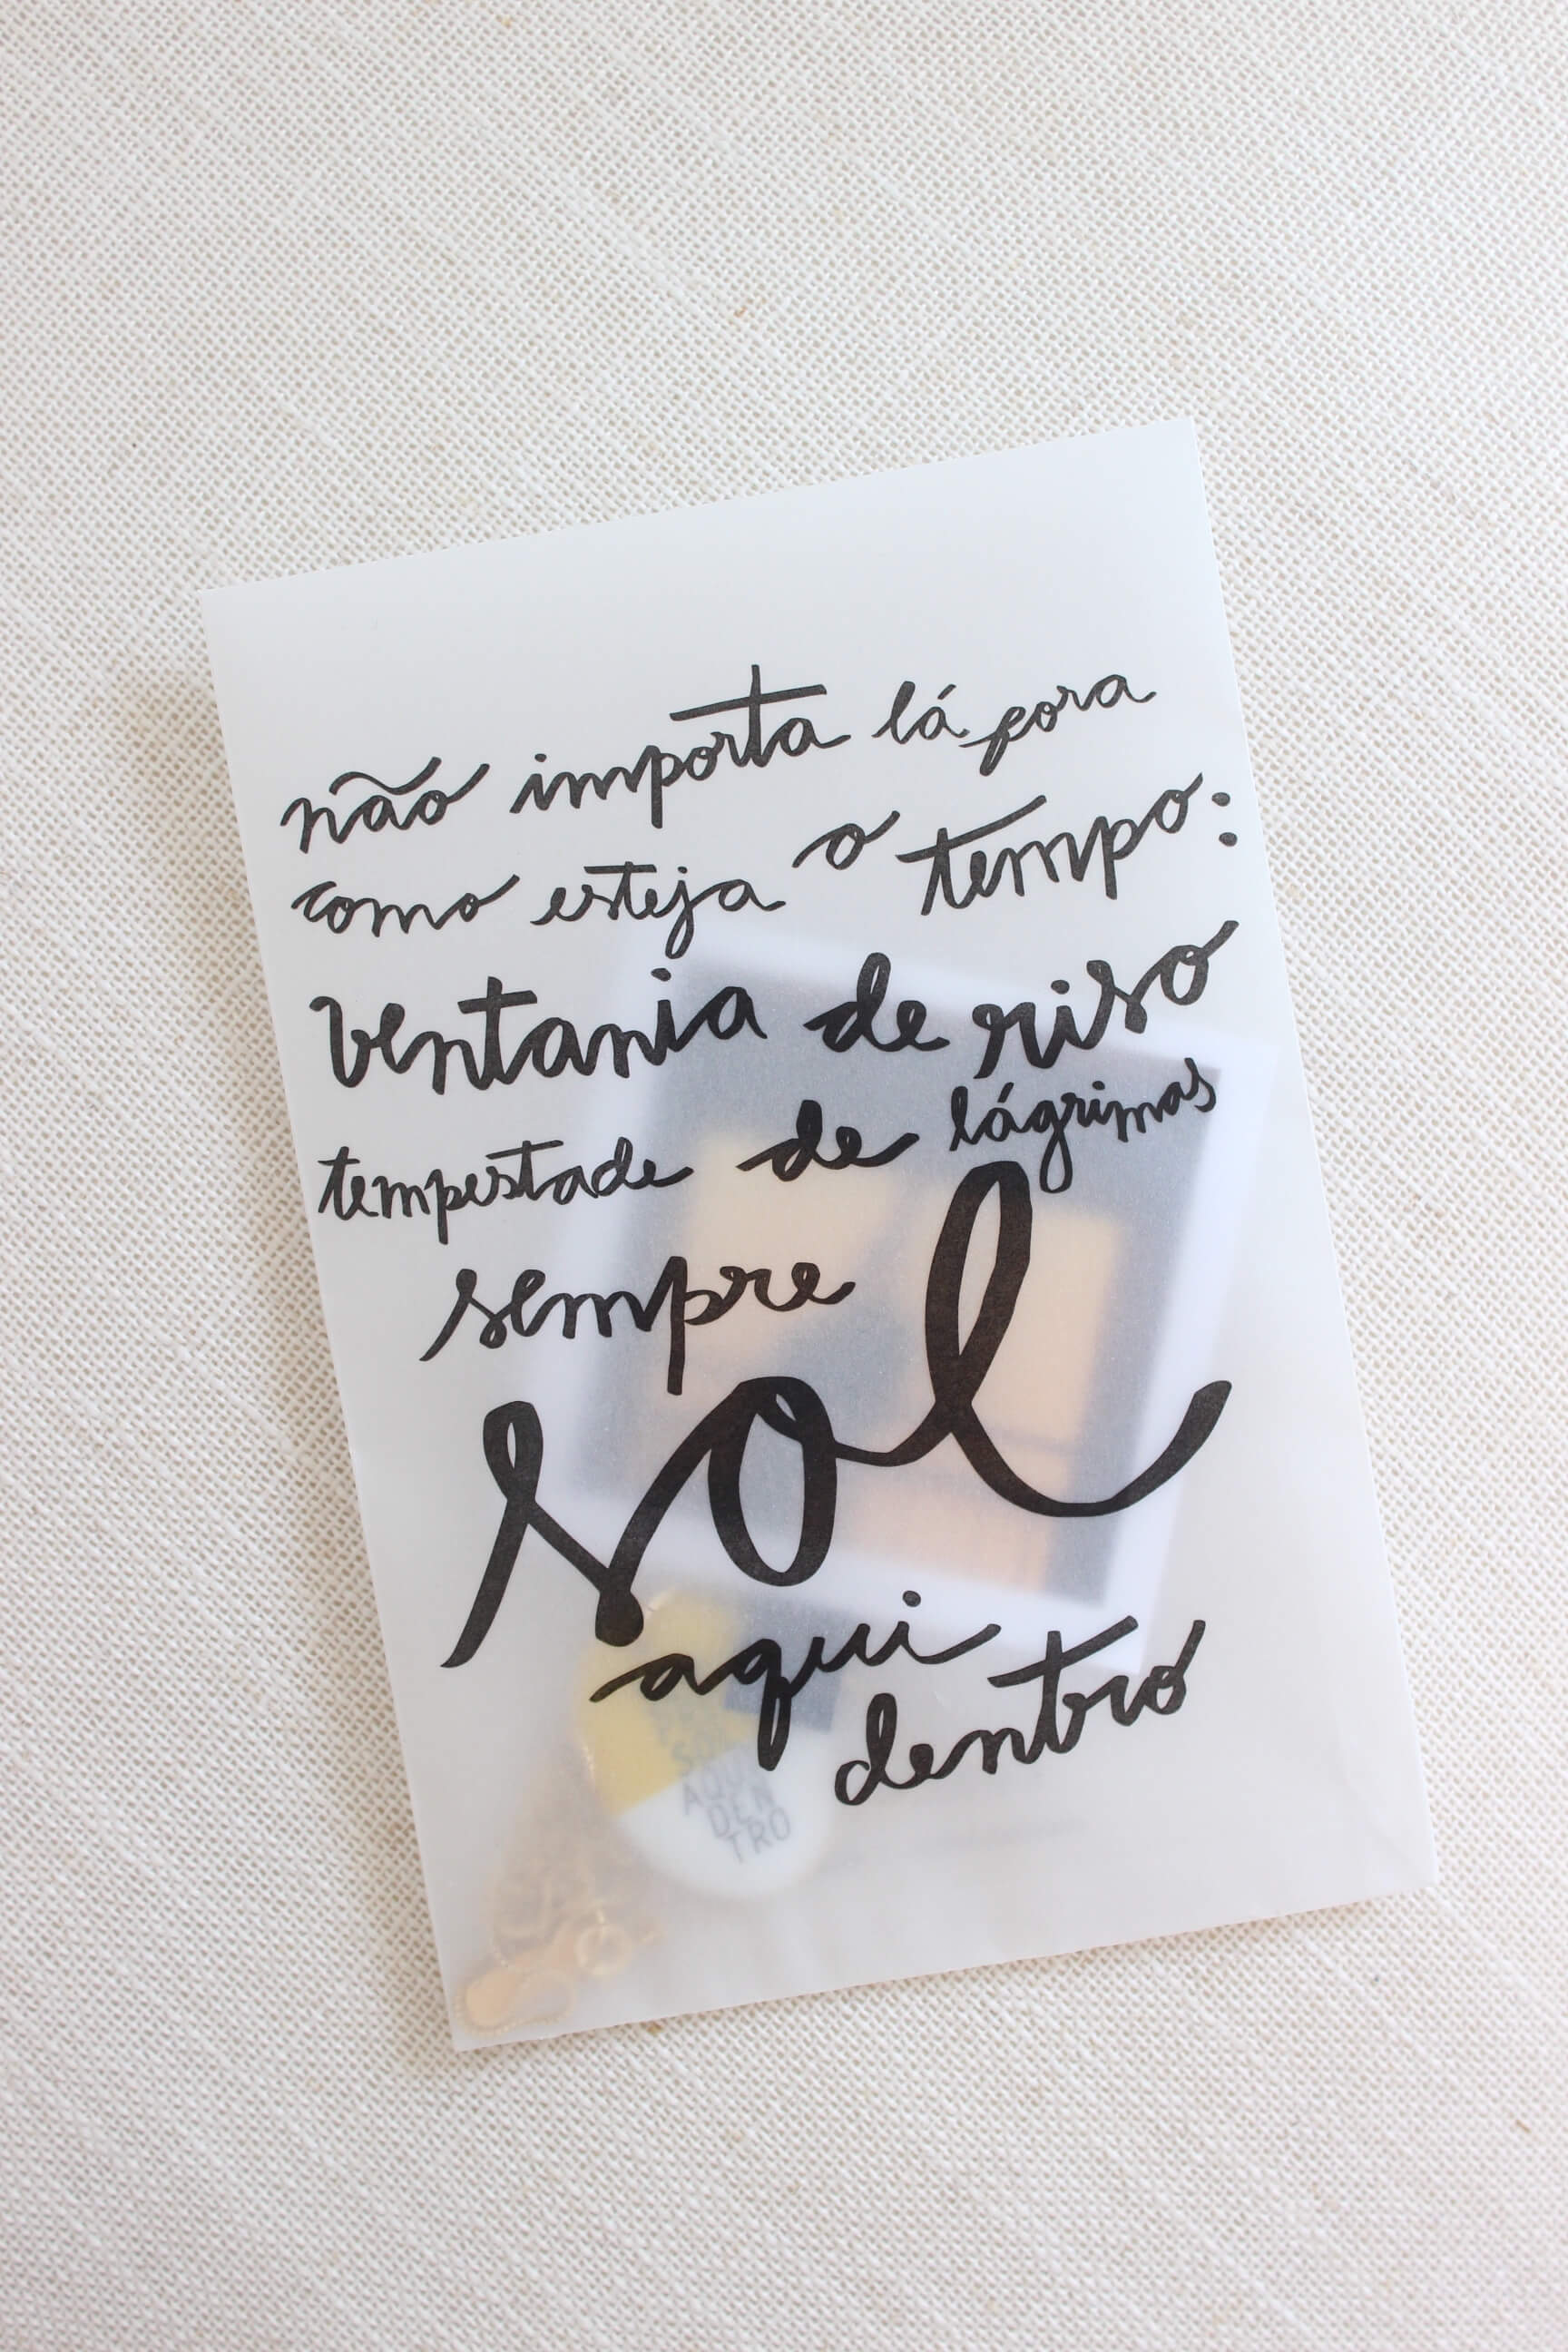 não importa lá fora
como esteja o tempo:
ventania de riso
tempestade de lágrimas
sempre
sol
aqui
dentro
SOL
AQUI
DEN
TRO